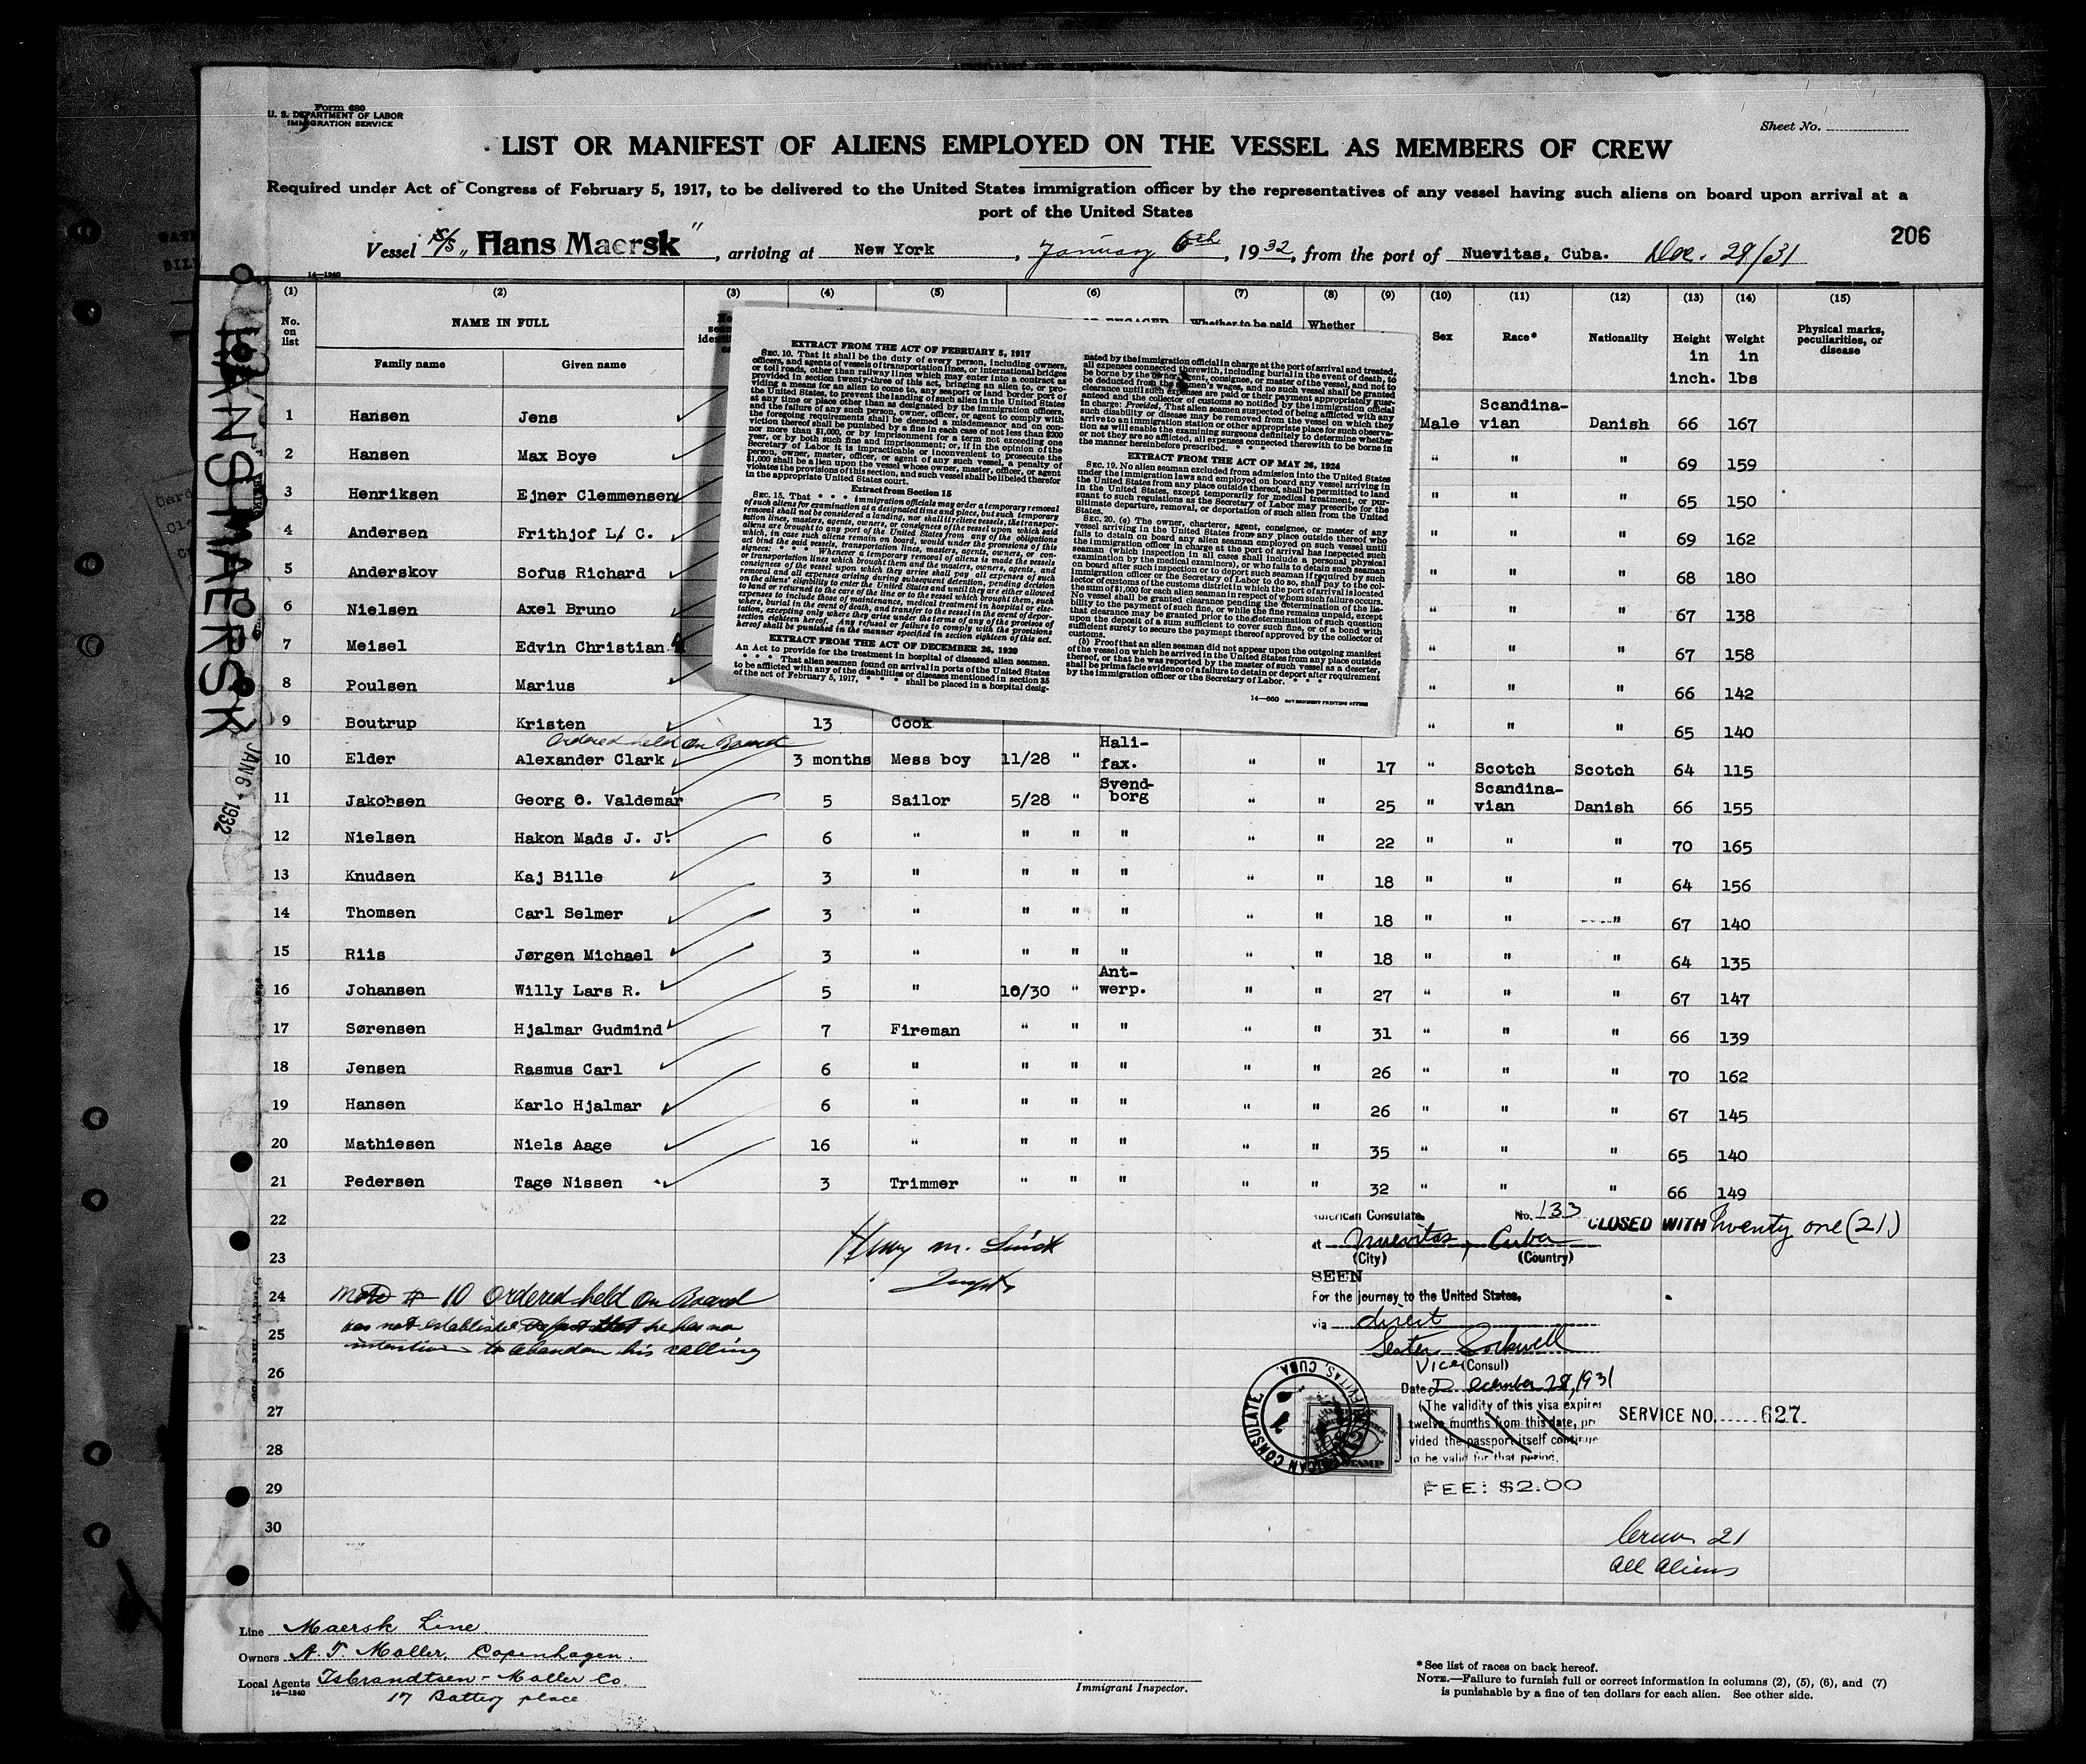 Form 680
U. S. DEPARTMENT OF LABOR
IMMIGRATION SERVICE
Sheet No.
LIST OR MANIFEST OF ALIENS EMPLOYED ON THE VESSEL AS MEMBERS OF CREW
Required under Act of Congress of February 5, 1917, to be delivered to the United States immigration officer by the representatives of any vessel having such aliens on board upon arrival at a
port of the United States
206
Vessel S/S „ Hans Maersk ", arriving at New York, January 6th, 1932, from the port of Nuevitas, Cuba. Dec. 29/31
14—1240
(1) (2) (3) (4) (5) (6) (7) (8) (9) (10) (11) (12) (13) (14) (15)
No. on list NAME IN FULL Whether to be paid Whether Sex Race* Nationality Height in inch. Weight in lbs Physical marks, peculiarities, or disease
Family name Given name
EXTRACT FROM THE ACT OF FEBRUARY 5, 1917
SEC. 10. That it shall be the duty of every person, including owners,
officers, and agents of vessels of transportation lines, or international bridges
or toll roads, other than railway lines which may enter into a contract as
provided in section twenty-three of this act, bringing an alien to, or pro-
viding a means for an alien to come to, any seaport or land border port of
the United States, to prevent the landing of such alien in the United States
at any time or place other than as designated by the immigration officers,
and the failure of any such person, owner, officer, or agent to comply with
the foregoing requirements shall be deemed a misdemeanor and on con-
viction thereof shall be punished by a fine in each case of not less than $200
nor more than $1,000, or by imprisonment for a term not exceeding one
year, or by both such fine and imprisonment; or, if in the opinion of the
Secretary of Labor it is impracticable or inconvenient to prosecute the
person, owner, master, officer, or agent of any such vessel, a penalty of
$1,000 shall be a lien upon the vessel whose owner, master, officer, or agent
violates the provisions of this section, and such vessel shall be libeled therefor
in the appropriate United States court.
Extract from Section 15
SEC. 15. That * * * immigration officials may order a temporary removal
of such aliens for examination at a designated time and place, but such temporary
removal shall not be considered a landing, nor shall it relieve vessels, the transpor-
tation lines, masters, agents, owners, or consignees of the vessel upon which said
aliens are brought to any port of the United States from any of the obligations
which, in case such aliens remain on board, would under the provisions of this
act bind the said vessels, transportation lines, masters, agents, owners, or con-
signees: * * * Whenever a temporary removal of aliens is made the vessels
or transportation lines which brought them and the masters, owners, agents, and
consignees of the vessel upon which they arrive shall pay all expenses of such
removal and all expenses arising during subsequent detention, pending decision
on the aliens' eligibility to enter the United States and until they are either allowed
to land or returned to the care of the line or to the vessel which brought them, such
expenses to include those of maintenance, medical treatment in hospital or else-
where, burial in the event of death, and transfer to the vessel in the event of depor-
tation, excepting only where they arise under the terms of any of the provisos of
section eighteen hereof. Any refusal or failure to comply with the provisions
hereof shall be punished in the manner specified in section eighteen of this act.
EXTRACT FROM THE ACT OF DECEMBER 26, 1920
An Act to provide for the treatment in hospital of diseased alien seamen.
* * * That alien seamen found on arrival in ports of the United States
to be afflicted with any of the disabilities or diseases mentioned in section 35
of the act of February 5, 1917, * * * shall be placed in a hospital desig-
nated by the immigration official in charge at the port of arrival and treated,
all expenses connected therewith, including burial in the event of death, to
be borne by the owner, agent, consignee, or master of the vessel, and not to
be deducted from the seamen's wages, and no such vessel shall be granted
clearance until such expenses are paid or their payment appropriately guar-
anteed and the collector of customs so notified by the immigration official
in charge: Provided, That alien seamen suspected of being afflicted with any
such disability or disease may be removed from the vessel on which they
arrive to an immigration station or other appropriate place for such observa-
tion as will enable the examining surgeons definitely to determine whether
or not they are so afflicted, all expenses connected therewith to be borne in
the manner hereinbefore prescribed. * * *
EXTRACT FROM THE ACT OF MAY 26, 1924
SEC. 19. No alien seaman excluded from admission into the United States
under the immigration laws and employed on board any vessel arriving in
the United States from any place outside thereof, shall be permitted to land
in the United States, except temporarily for medical treatment, or pur-
suant to such regulations as the Secretary of Labor may prescribe for the
ultimate departure, removal, or deportation of such alien from the United
States.
SEC. 20. (a) The owner, charterer, agent, consignee, or master of any
vessel arriving in the United States from any place outside thereof who
fails to detain on board any alien seaman employed on such vessel until
the immigration officer in charge at the port of arrival has inspected such
seaman (which inspection in all cases shall include a personal physical
examination by the medical examiners), or who fails to detain such seaman
on board after such inspection or to deport such seaman if required by such
immigration officer or the Secretary of Labor to do so, shall pay to the col-
lector of customs of the customs district in which the port of arrival is located
the sum of $1,000 for each alien seaman in respect of whom such failure occurs.
No vessel shall be granted clearance pending the determination of the lia-
bility to the payment of such fine, or while the fine remains unpaid, except
that clearance may be granted prior to the determination of such question
upon the deposit of a sum sufficient to cover such fine, or of a bond with
sufficient surety to secure the payment thereof approved by the collector of
customs.
(b) Proof that an alien seaman did not appear upon the outgoing manifest
of the vessel on which he arrived in the United States from any place outside
thereof, or that he was reported by the master of such vessel as a deserter,
shall be prima facie evidence of a failure to detain or deport after requirement
by the immigration officer or the Secretary of Labor. * * *
14—680 GOVERNMENT PRINTING OFFICE
1 Hansen Jens Male Scandina-vian Danish 66 167
2 Hansen Max Boye " " " 69 159
3 Henriksen Ejner Clemmensen " " " 65 150
4 Andersen Frithjof L. C. " " " 69 162
5 Anderskov Sofus Richard " " " 68 180
6 Nielsen Axel Bruno " " " 67 138
7 Meisel Edvin Christian " " " 67 158
8 Poulsen Marius " " " 66 142
9 Boutrup Kristen 13 Cook " " " 65 140
Ordered held On Board
10 Elder Alexander Clark 3 months Mess boy 11/28 " Hali-fax. " " 17 " Scotch Scotch 64 115
11 Jakobsen Georg O. Valdemar 5 Sailor 5/28 " Svend-borg " " 25 " Scandina-vian Danish 66 155
12 Nielsen Hakon Mads J. J. 6 " " " " " " 22 " " " 70 165
13 Knudsen Kaj Bille 3 " " " " " " 18 " " " 64 156
14 Thomsen Carl Selmer 3 " " " " " " 18 " " " 67 140
15 Riis Jørgen Michael 3 " " " " " " 18 " " " 64 135
16 Johansen Willy Lars R. 5 " 10/30 " Ant-werp. " " 27 " " " 67 147
17 Sørensen Hjalmar Gudmind 7 Fireman " " " " " 31 " " " 66 139
18 Jensen Rasmus Carl 6 " " " " " " 26 " " " 70 162
19 Hansen Karlo Hjalmar 6 " " " " " " 26 " " " 67 145
20 Mathiesen Niels Aage 16 " " " " " " 35 " " " 65 140
21 Pedersen Tage Nissen 3 Trimmer " " " " " 32 " " " 66 149
22
23
24
25
26
27
28
29
30
Henry M.
Note # 10 Ordered held On Board
has not established the fact that he has no
intention to abandon his calling
American Consulate No. 133
at Nuevitas, Cuba
(City) (Country)
SEEN
For the journey to the United States,
via direct
Lester Rockwell
Vice (Consul)
Date December 28, 1931
(The validity of this visa expires
twelve months from this date, pro
vided the passport itself continue
to be valid for that period.
FEE: $2.00
CLOSED WITH Twenty one (21)
SERVICE NO. 627
AMERICAN CONSULATE NUEVITAS, CUBA.
Crew 21
All Aliens
HANS MAERSK
JAN 6 - 1932
Line Maersk Line
Owners A. P. Moller, Copenhagen.
Local Agents Isbrandtsen-Moller Co.
14—1240
17 Battery place
Immigrant Inspector.
*See list of races on back hereof.
NOTE.—Failure to furnish full or correct information in columns (2), (5), (6), and (7)
is punishable by a fine of ten dollars for each alien. See other side.